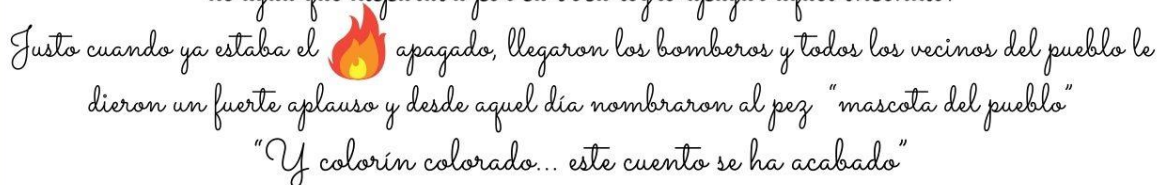 Justo cuando ya estaba el apagado, llegaron los bomberos y todos los vecinos del pueblo le
dieron un fuerte aplauso y desde aquel día nombraron al pez "mascota del pueblo"
"Y colorín colorado... este cuento se ha acabado"